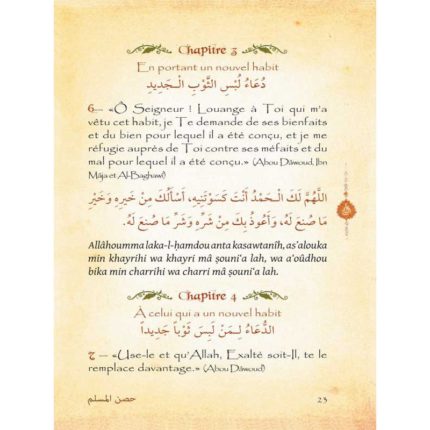 Chapitre 3
En portant un nouvel habit
دُعَاءُ لُبْسِ الثَّوْبِ الْـجَدِيدِ
6— «Ô Seigneur ! Louange à Toi qui m'a
vêtu cet habit, je Te demande de ses bienfaits
et du bien pour lequel il a été conçu, et je me
réfugie auprès de Toi contre ses méfaits et du
mal pour lequel il a été conçu.» (Abou Dâwoud, Ibn
Mâja et Al-Baghawî)
اللَّهُمَّ لَكَ الْـحَمْدُ أَنْتَ كَسَوْتَنِيهِ، أَسْأَلُكَ مِنْ خَيرِهِ وَخَيْرِ
مَا صُنِعَ لَهُ، وَأَعُوذُ بِكَ مِنْ شَرِّهِ وَشَرِّ مَا صُنِعَ لَهُ.
Allâhoumma laka-l-ḥamdou anta kasawtanîh, as'alouka
min khayrihi wa khayri mâ ṣouni'a lah, wa a'oûdhou
bika min charrihi wa charri mâ ṣouni'a lah.
Chapitre 4
À celui qui a un nouvel habit
الدُّعَاءُ لِـمَنْ لَبِسَ ثَوْباً جَدِيداً
«Use-le et qu'Allah, Exalté soit-Il, te le
remplace davantage.» (Abou Dâwoud)
حصن المسلم
23